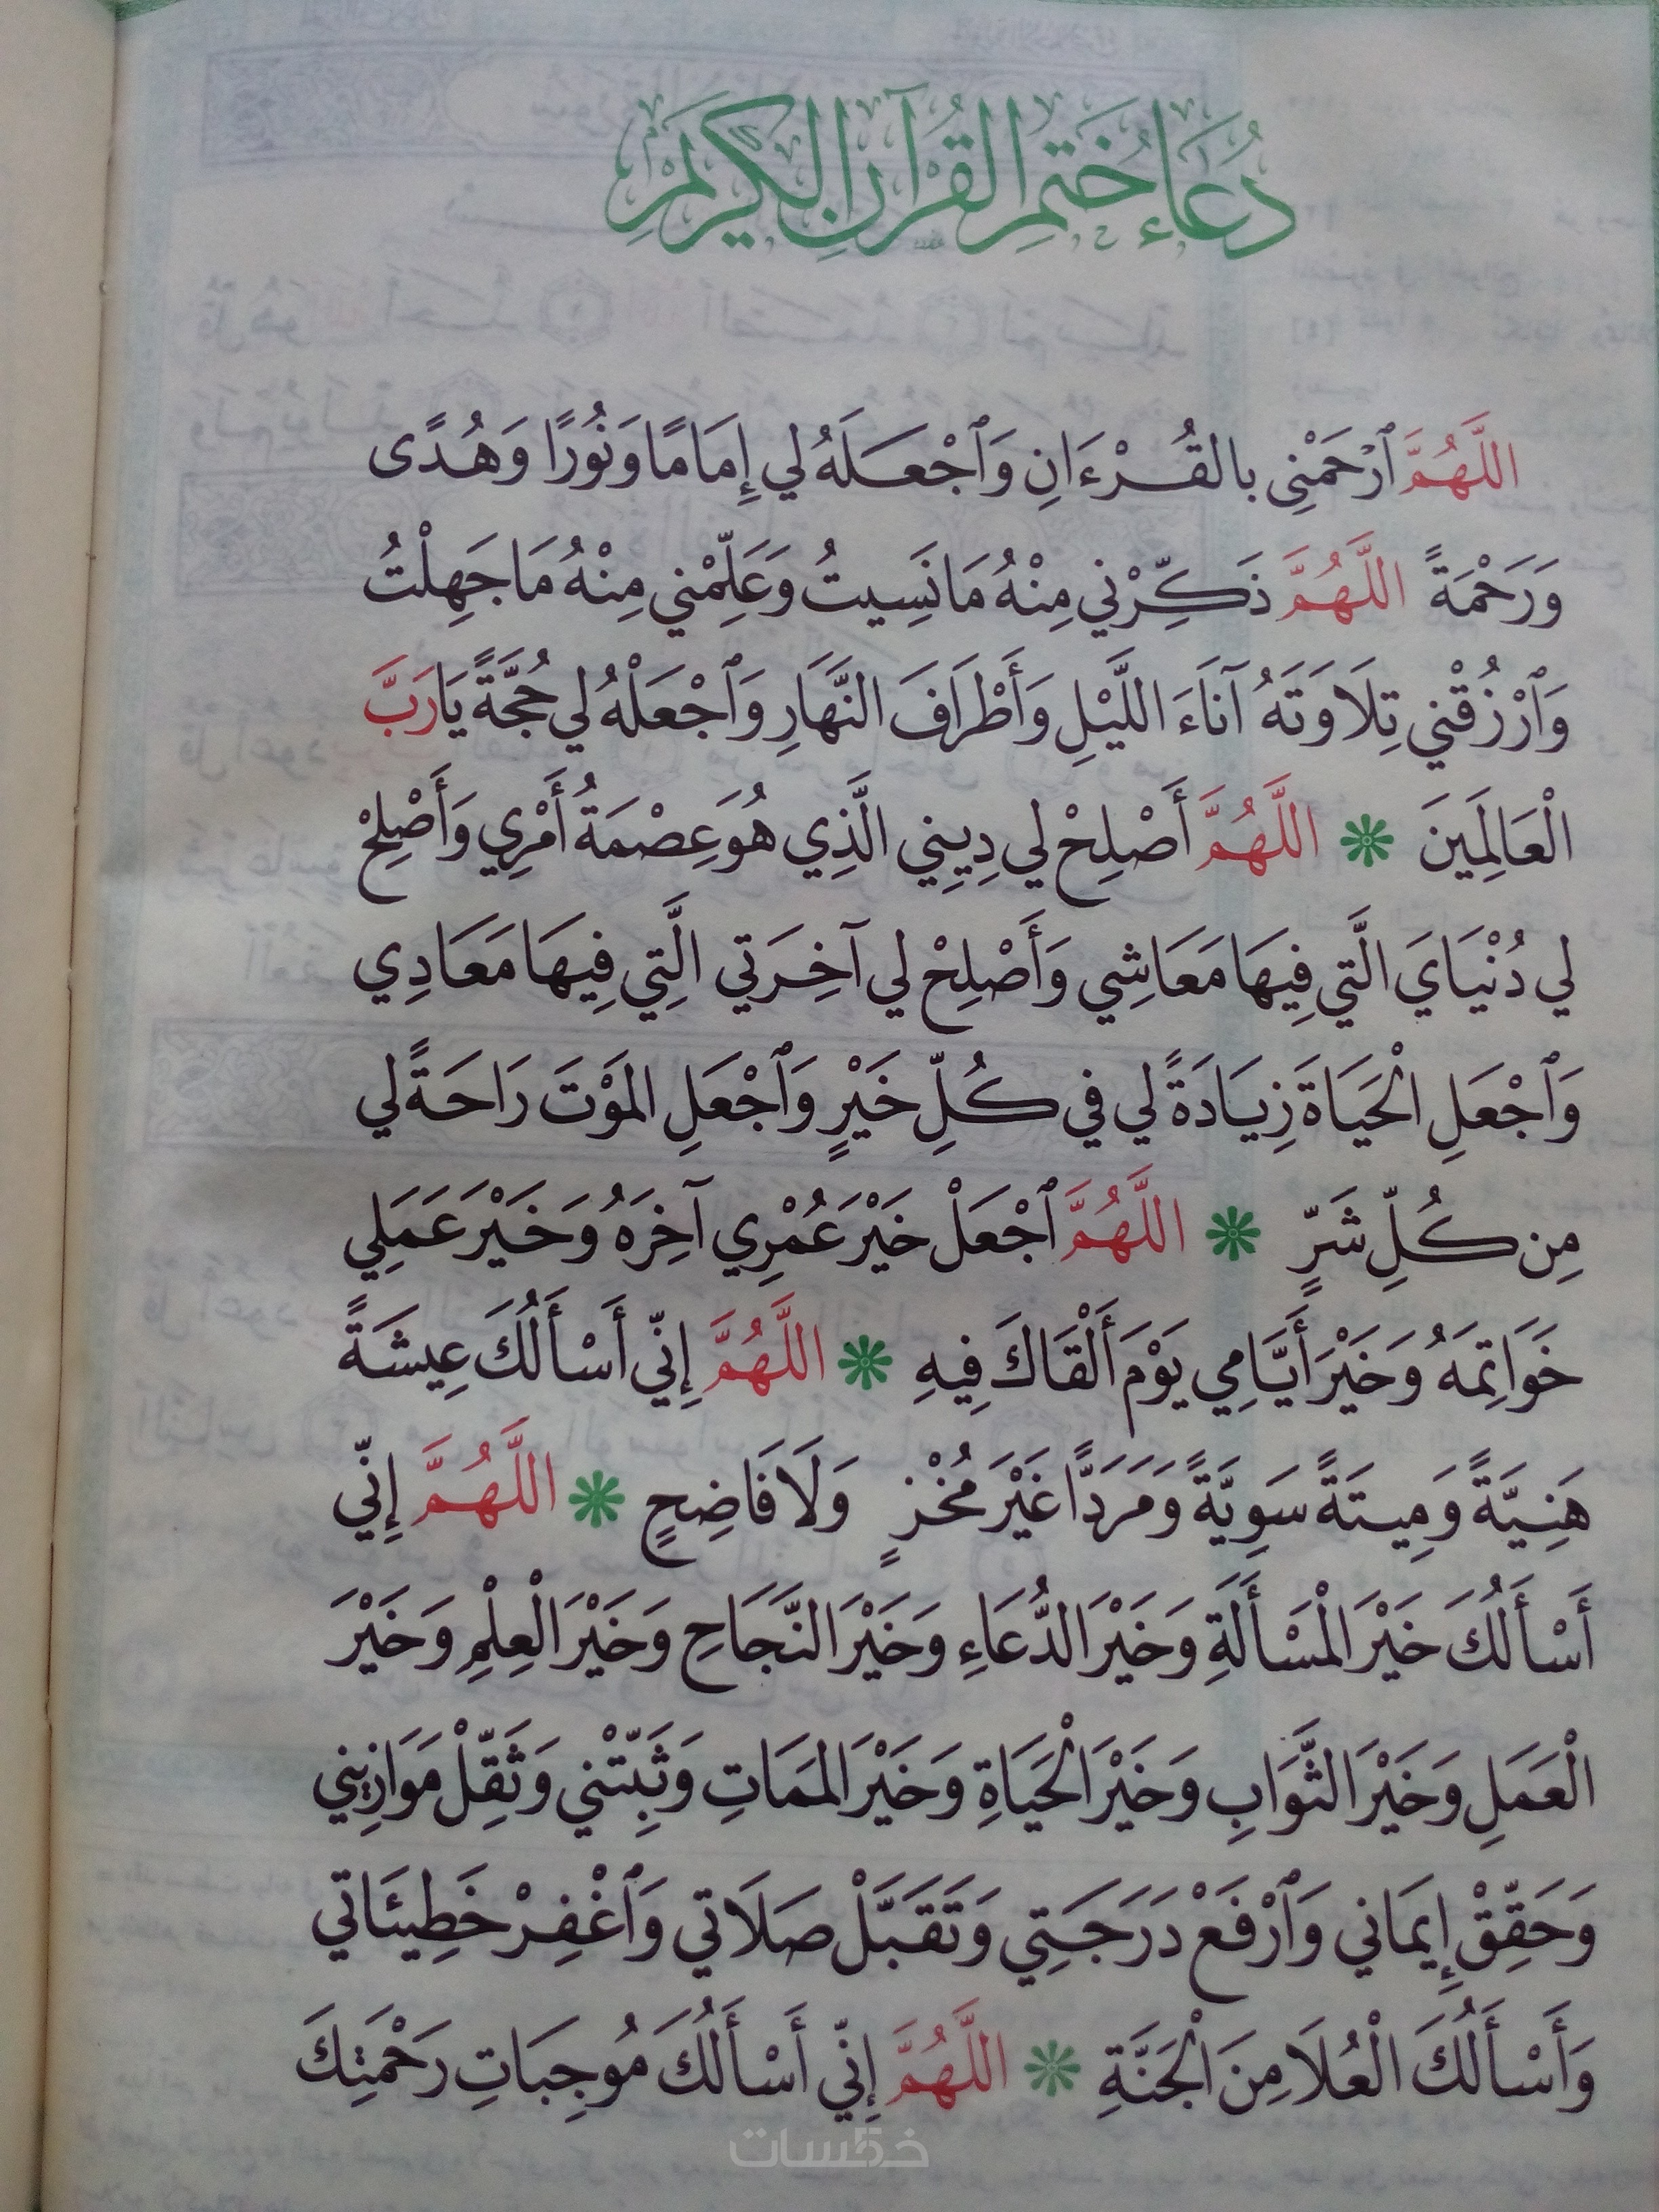 دُعَاءُ خَتْمِ القُرْآنِ الكَرِيمِ
اللَّهُمَّ ٱرْحَمْنِي بالقُرْءَانِ وَٱجْعَلهُ لي إِمَامًا وَنُورًا وَهُدًى
وَرَحْمَةً اللَّهُمَّ ذَكِّرْني مِنْهُ مَا نَسِيتُ وَعَلِّمْني مِنْهُ مَا جَهِلْتُ
وَٱرْزُقْني تِلَاوَتَهُ آنَاءَ اللَّيْلِ وَأَطْرَافَ النَّهَارِ وَٱجْعَلْهُ لي حُجَّةً يَا رَبَّ
الْعَالَمِينَ ❋ اللَّهُمَّ أَصْلِحْ لي دِينِي الَّذِي هُوَ عِصْمَةُ أَمْرِي وَأَصْلِحْ
لي دُنْيَايَ الَّتي فِيهَا مَعَاشِي وَأَصْلِحْ لي آخِرَتي الَّتِي فِيهَا مَعَادِي
وَٱجْعَلِ الْحَيَاةَ زِيَادَةً لي في كُلِّ خَيْرٍ وَٱجْعَلِ المَوْتَ رَاحَةً لي
مِن كُلِّ شَرٍّ ❋ اللَّهُمَّ ٱجْعَلْ خَيْرَ عُمْرِي آخِرَهُ وَخَيْرَ عَمَلِي
خَوَاتِمَهُ وَخَيْرَ أَيَّامِي يَوْمَ أَلْقَاكَ فِيهِ ❋ اللَّهُمَّ إِنّي أَسْأَلُكَ عِيشَةً
هَنِيَّةً وَمِيتَةً سَوِيَّةً وَمَرَدًّا غَيْرَ مُخْزٍ وَلَا فَاضِحٍ ❋ اللَّهُمَّ إِنّي
أَسْأَلُكَ خَيْرَ الْمَسْأَلَةِ وَخَيْرَ الدُّعَاءِ وَخَيْرَ النَّجَاحِ وَخَيْرَ الْعِلْمِ وَخَيْرَ
الْعَمَلِ وَخَيْرَ الثَّوَابِ وَخَيْرَ الْحَيَاةِ وَخَيْرَ المَمَاتِ وَثَبِّتْني وَثَقِّلْ مَوَازِيني
وَحَقِّقْ إِيمَاني وَٱرْفَعْ دَرَجَتِي وَتَقَبَّلْ صَلَاتي وَٱغْفِرْ خَطِيئَاتي
وَأَسْأَلُكَ الْعُلَا مِنَ الْجَنَّةِ ❋ اللَّهُمَّ إِنّي أَسْأَلُكَ مُوجِبَاتِ رَحْمَتِكَ
خمسات